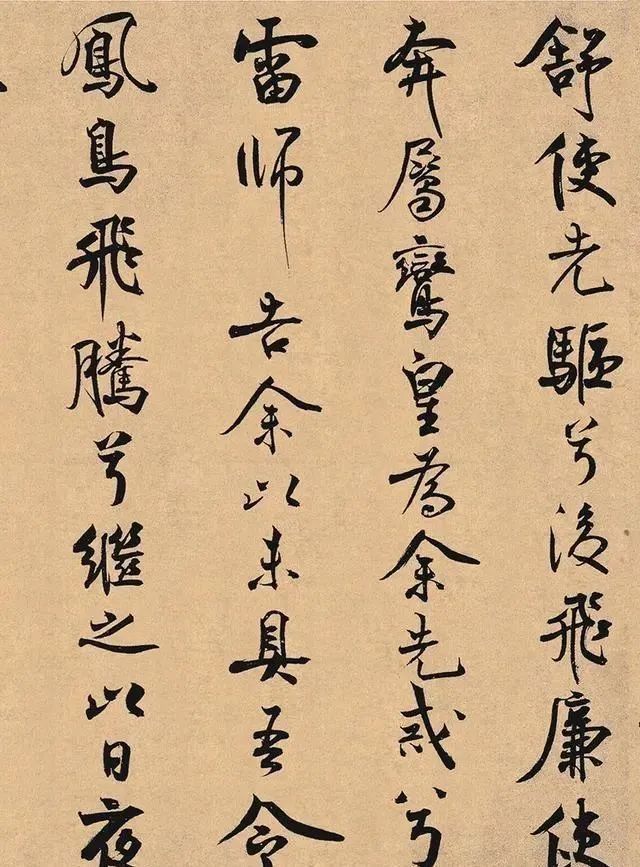 舒使先驅兮後飛廉使
奔屬鸞皇為余先戒兮
雷師告余以未具吾令
鳳鳥飛騰兮繼之以日夜